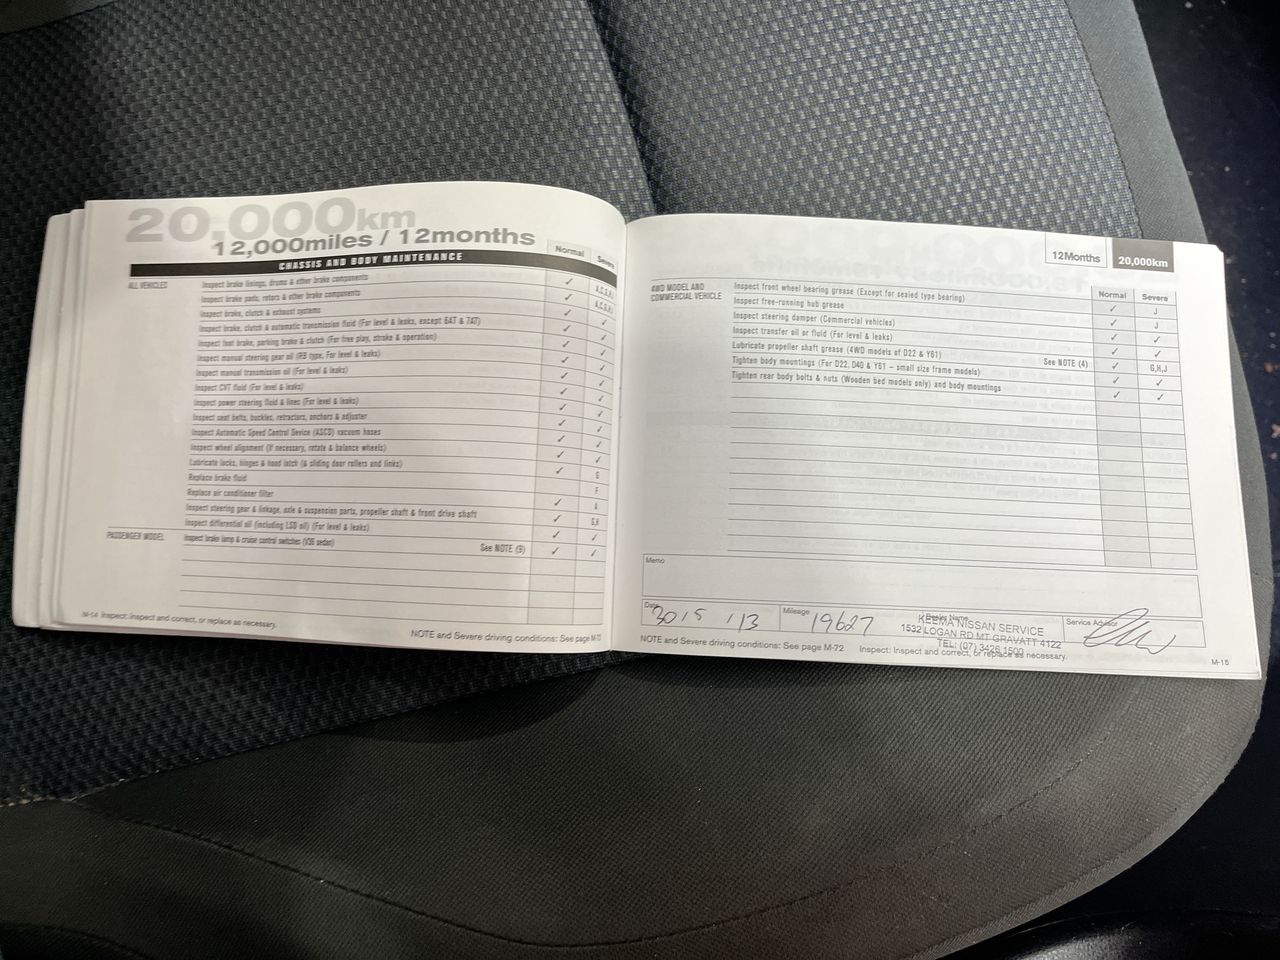 20,000km
12,000miles / 12months
Normal Severe
CHASSIS AND BODY MAINTENANCE
ALL VEHICLES Inspect brake linings, drums & other brake components ✓ A,C,G,H,I
Inspect brake pads, rotors & other brake components ✓ A,C,G,H,I
Inspect brake, clutch & exhaust systems ✓ ✓
Inspect brake, clutch & automatic transmission fluid (For level & leaks, except 6AT & 7AT) ✓ ✓
Inspect foot brake, parking brake & clutch (For free play, stroke & operation) ✓ ✓
Inspect manual steering gear oil (RB type, For level & leaks) ✓ ✓
Inspect manual transmission oil (For level & leaks) ✓ ✓
Inspect CVT fluid (For level & leaks) ✓ ✓
Inspect power steering fluid & lines (For level & leaks) ✓ ✓
Inspect seat belts, buckles, retractors, anchors & adjuster ✓ ✓
Inspect Automatic Speed Control Device (ASCD) vacuum hoses ✓ ✓
Inspect wheel alignment (If necessary, rotate & balance wheels) ✓ ✓
Lubricate locks, hinges & hood latch (& sliding door rollers and links) ✓ G
Replace brake fluid F
Replace air conditioner filter A
Inspect steering gear & linkage, axle & suspension parts, propeller shaft & front drive shaft ✓ G,H
Inspect differential oil (including LSD oil) (For level & leaks) ✓ ✓
PASSENGER MODEL Inspect brake lamp & cruise control switches (V36 sedan) See NOTE (9) ✓ ✓
M-14 Inspect: Inspect and correct, or replace as necessary.
NOTE and Severe driving conditions: See page M-72
12Months 20,000km
Normal Severe
4WD MODEL AND COMMERCIAL VEHICLE Inspect front wheel bearing grease (Except for sealed type bearing) ✓ J
Inspect free-running hub grease ✓ J
Inspect steering damper (Commercial vehicles) ✓ ✓
Inspect transfer oil or fluid (For level & leaks) ✓ ✓
Lubricate propeller shaft grease (4WD models of D22 & Y61) See NOTE (4) ✓ G,H,J
Tighten body mountings (For D22, D40 & Y61 – small size frame models) ✓ ✓
Tighten rear body bolts & nuts (Wooden bed models only) and body mountings ✓ ✓
Memo
Date 30 / 5 / 13 Mileage 19627 Service Advisor
KEEMA NISSAN SERVICE
1532 LOGAN RD MT GRAVATT 4122
TEL: (07) 3426 1500
NOTE and Severe driving conditions: See page M-72 Inspect: Inspect and correct, or replace as necessary.
M-15